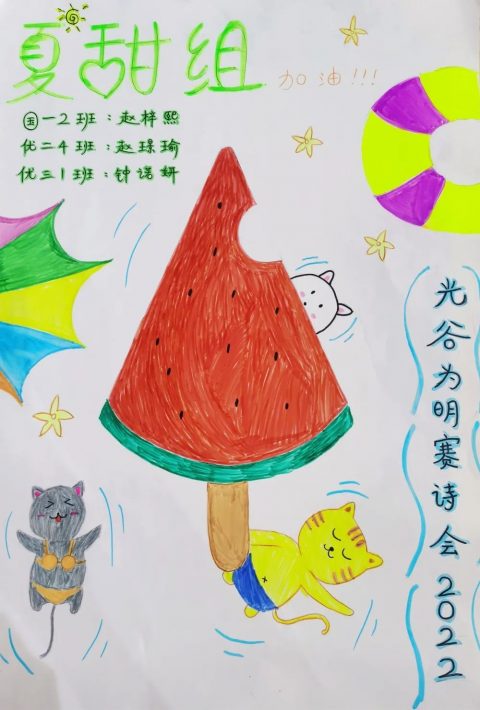 夏甜组
加油!!!
国一2班:赵梓熙
优二4班:赵璟瑜
优三1班:钟诺妍
光谷为明赛诗会2022